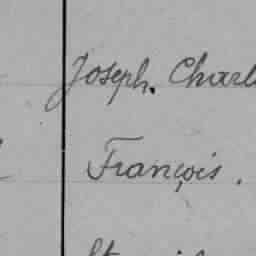 Joseph. Charl
François.